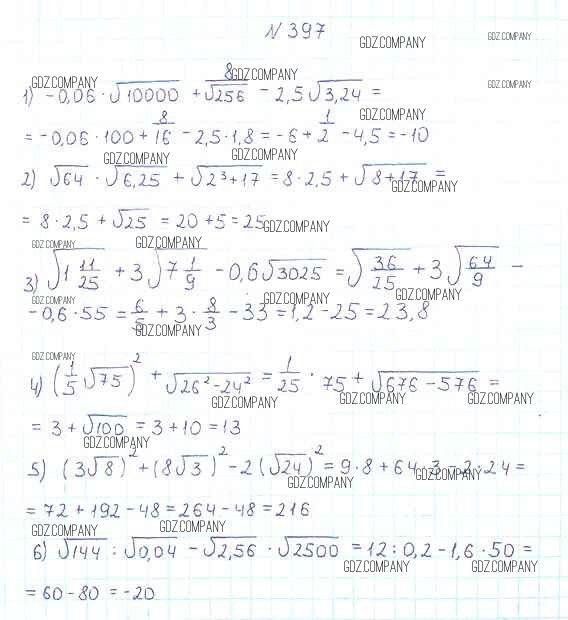 N 397
GDZ.COMPANY GDZ.COMPANY
GDZ.COMPANY GDZ.COMPANY GDZ.COMPANY
1) -0,06 · √10000 + 8/√256 - 2,5√3,24 =
GDZ.COMPANY
= -0,06 · 100 + 8/16 - 2,5 · 1,8 = -6 + 1/2 - 4,5 = -10
GDZ.COMPANY GDZ.COMPANY
2) √64 · √6,25 + √2³+17 = 8 · 2,5 + √8+17 =
GDZ.COMPANY
= 8 · 2,5 + √25 = 20 + 5 = 25
GDZ.COMPANY
GDZ.COMPANY GDZ.COMPANY
3) √1 11/25 + 3√7 1/9 - 0,6√3025 = √36/25 + 3√64/9 -
GDZ.COMPANY GDZ.COMPANY GDZ.COMPANY
-0,6 · 55 = 6/5 + 3 · 8/3 - 33 = 1,2 - 25 = 23,8
GDZ.COMPANY
GDZ.COMPANY
4) (1/5 √75)² + √26²-24² = 1/25 · 75 + √676-576 =
GDZ.COMPANY GDZ.COMPANY GDZ.COMPANY
= 3 + √100 = 3 + 10 = 13
GDZ.COMPANY
5) (3√8)² + (8√3)² - 2(√24)² = 9 · 8 + 64 · 3 - 2 · 24 =
GDZ.COMPANY GDZ.COMPANY
= 72 + 192 - 48 = 264 - 48 = 216
GDZ.COMPANY GDZ.COMPANY
6) √144 : √0,04 - √2,56 · √2500 = 12 : 0,2 - 1,6 · 50 =
GDZ.COMPANY GDZ.COMPANY
= 60 - 80 = -20